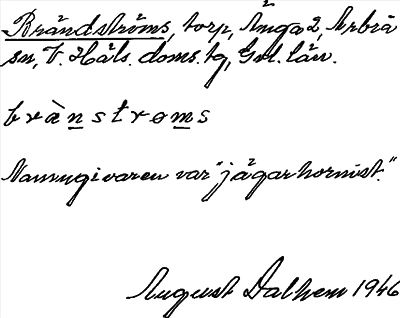 Brändströms, torp, Änga 2, Arbrå
sn, V. Häls. doms. tg, Gvl. län.
bränstroms
Namngivaren var "jägarhornist."
August Dalhem 1946